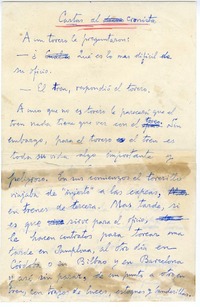 Cartas al cronista
"A un torero le preguntaron:
— ¿ Qué es lo más difícil de
su oficio.
— El tren, respondió el torero.
A uno que no es torero le parecerá que el
tren nada tiene que ver con el toreo. Sin
embargo, para el torero el tren es
toda su vida algo importante y
peligroso. En sus comienzos el torerillo
viajaba de "sujeto" a las capeas,
en trenes de tercera. Mas tarde, si
es que sirve para el oficio,
le hacen contratos para torear una
tarde en Pamplona, al otro día en
Córdoba y Bilbao y en Barcelona
y
con trajes de luces,